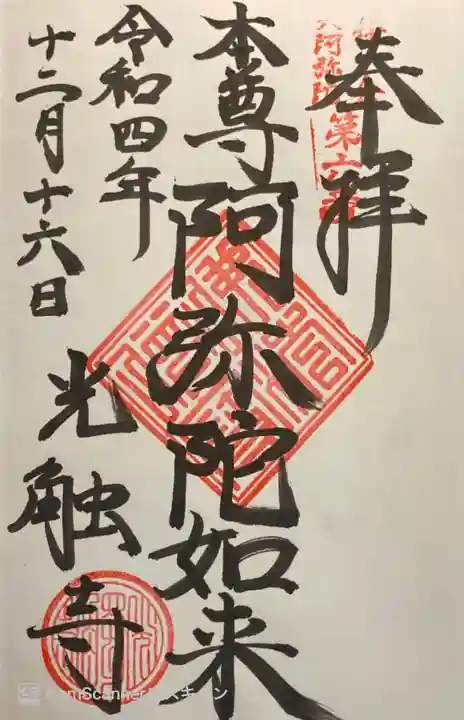 奉拝
本尊 阿弥陀如来
令和四年
十二月十六日
光触寺
CS CamScannerでスキャン